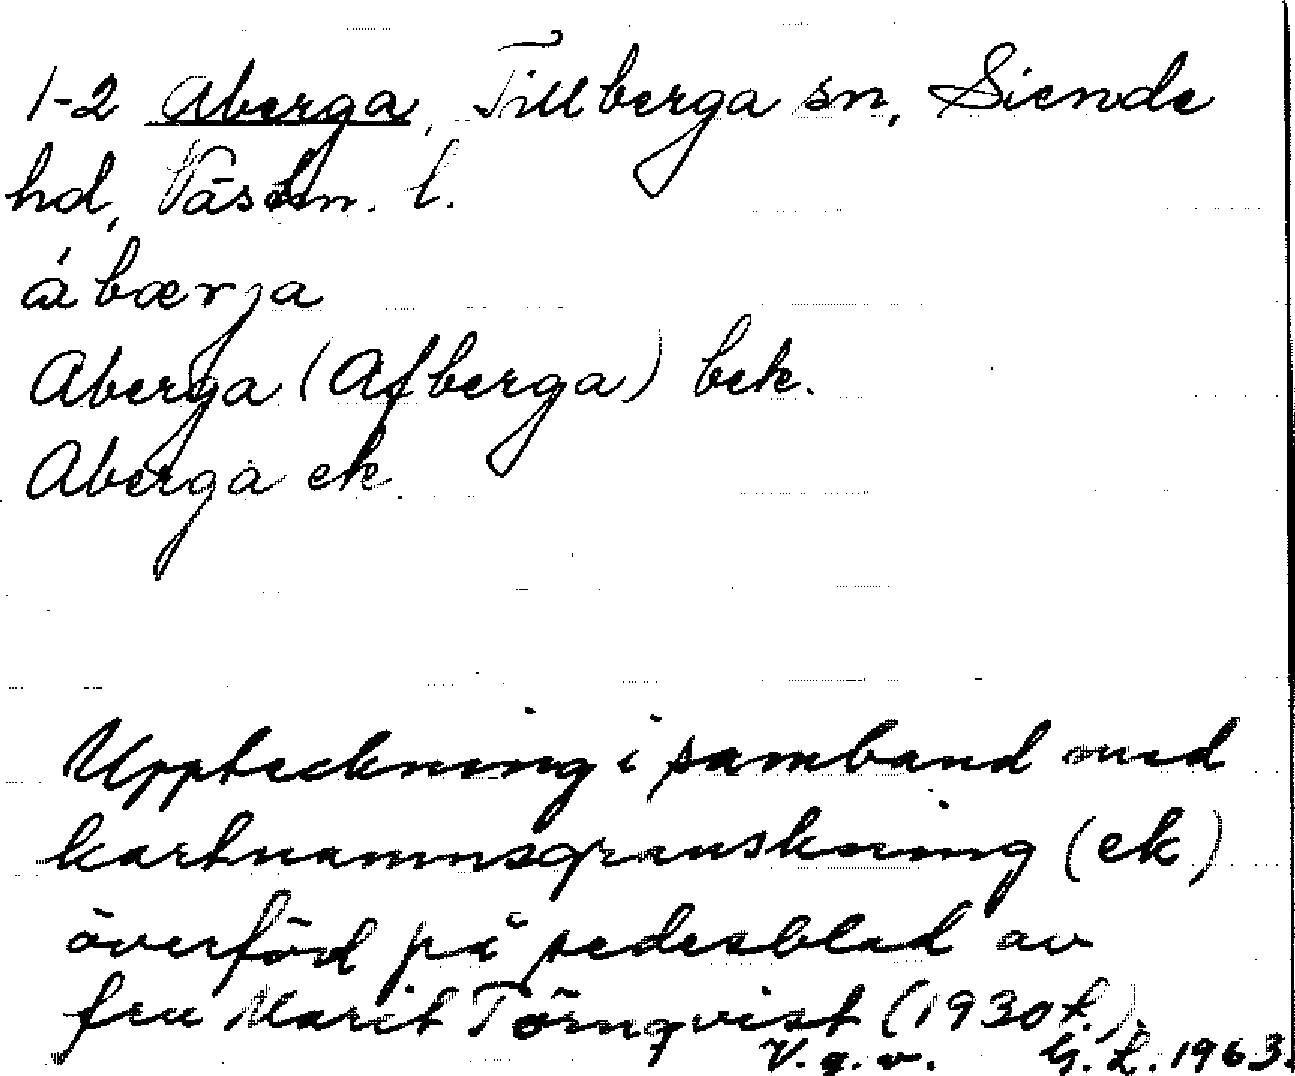 1-2 Aberga, Tillberga sn, Siende
hd, Västm. l.
á bærja
Aberga (Afberga) bek.
Aberga ek.
Uppteckning i samband med
kartnamnsgranskning (ek)
överförd på sedesblad av
fru Marit Törnqvist (1930t.).
V. g. v. G. L. 1963.